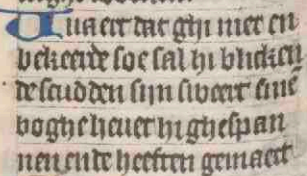 Twaer dat ghi niet en
bekeerde soe sal hi blicken
de scudden sijn swert sine
boghe heuet hi ghespan
nen ende heeften gemaect